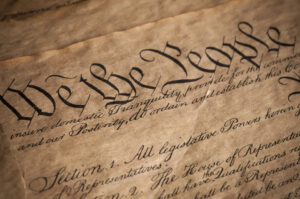 We the People
insure domestic Tranquility, provide for the common
and our Posterity, do ordain and establish this
Section 1. All legislative Powers herein
of Representatives.
Section 2. The House of Represent
have Qualifications
shall be a Represent